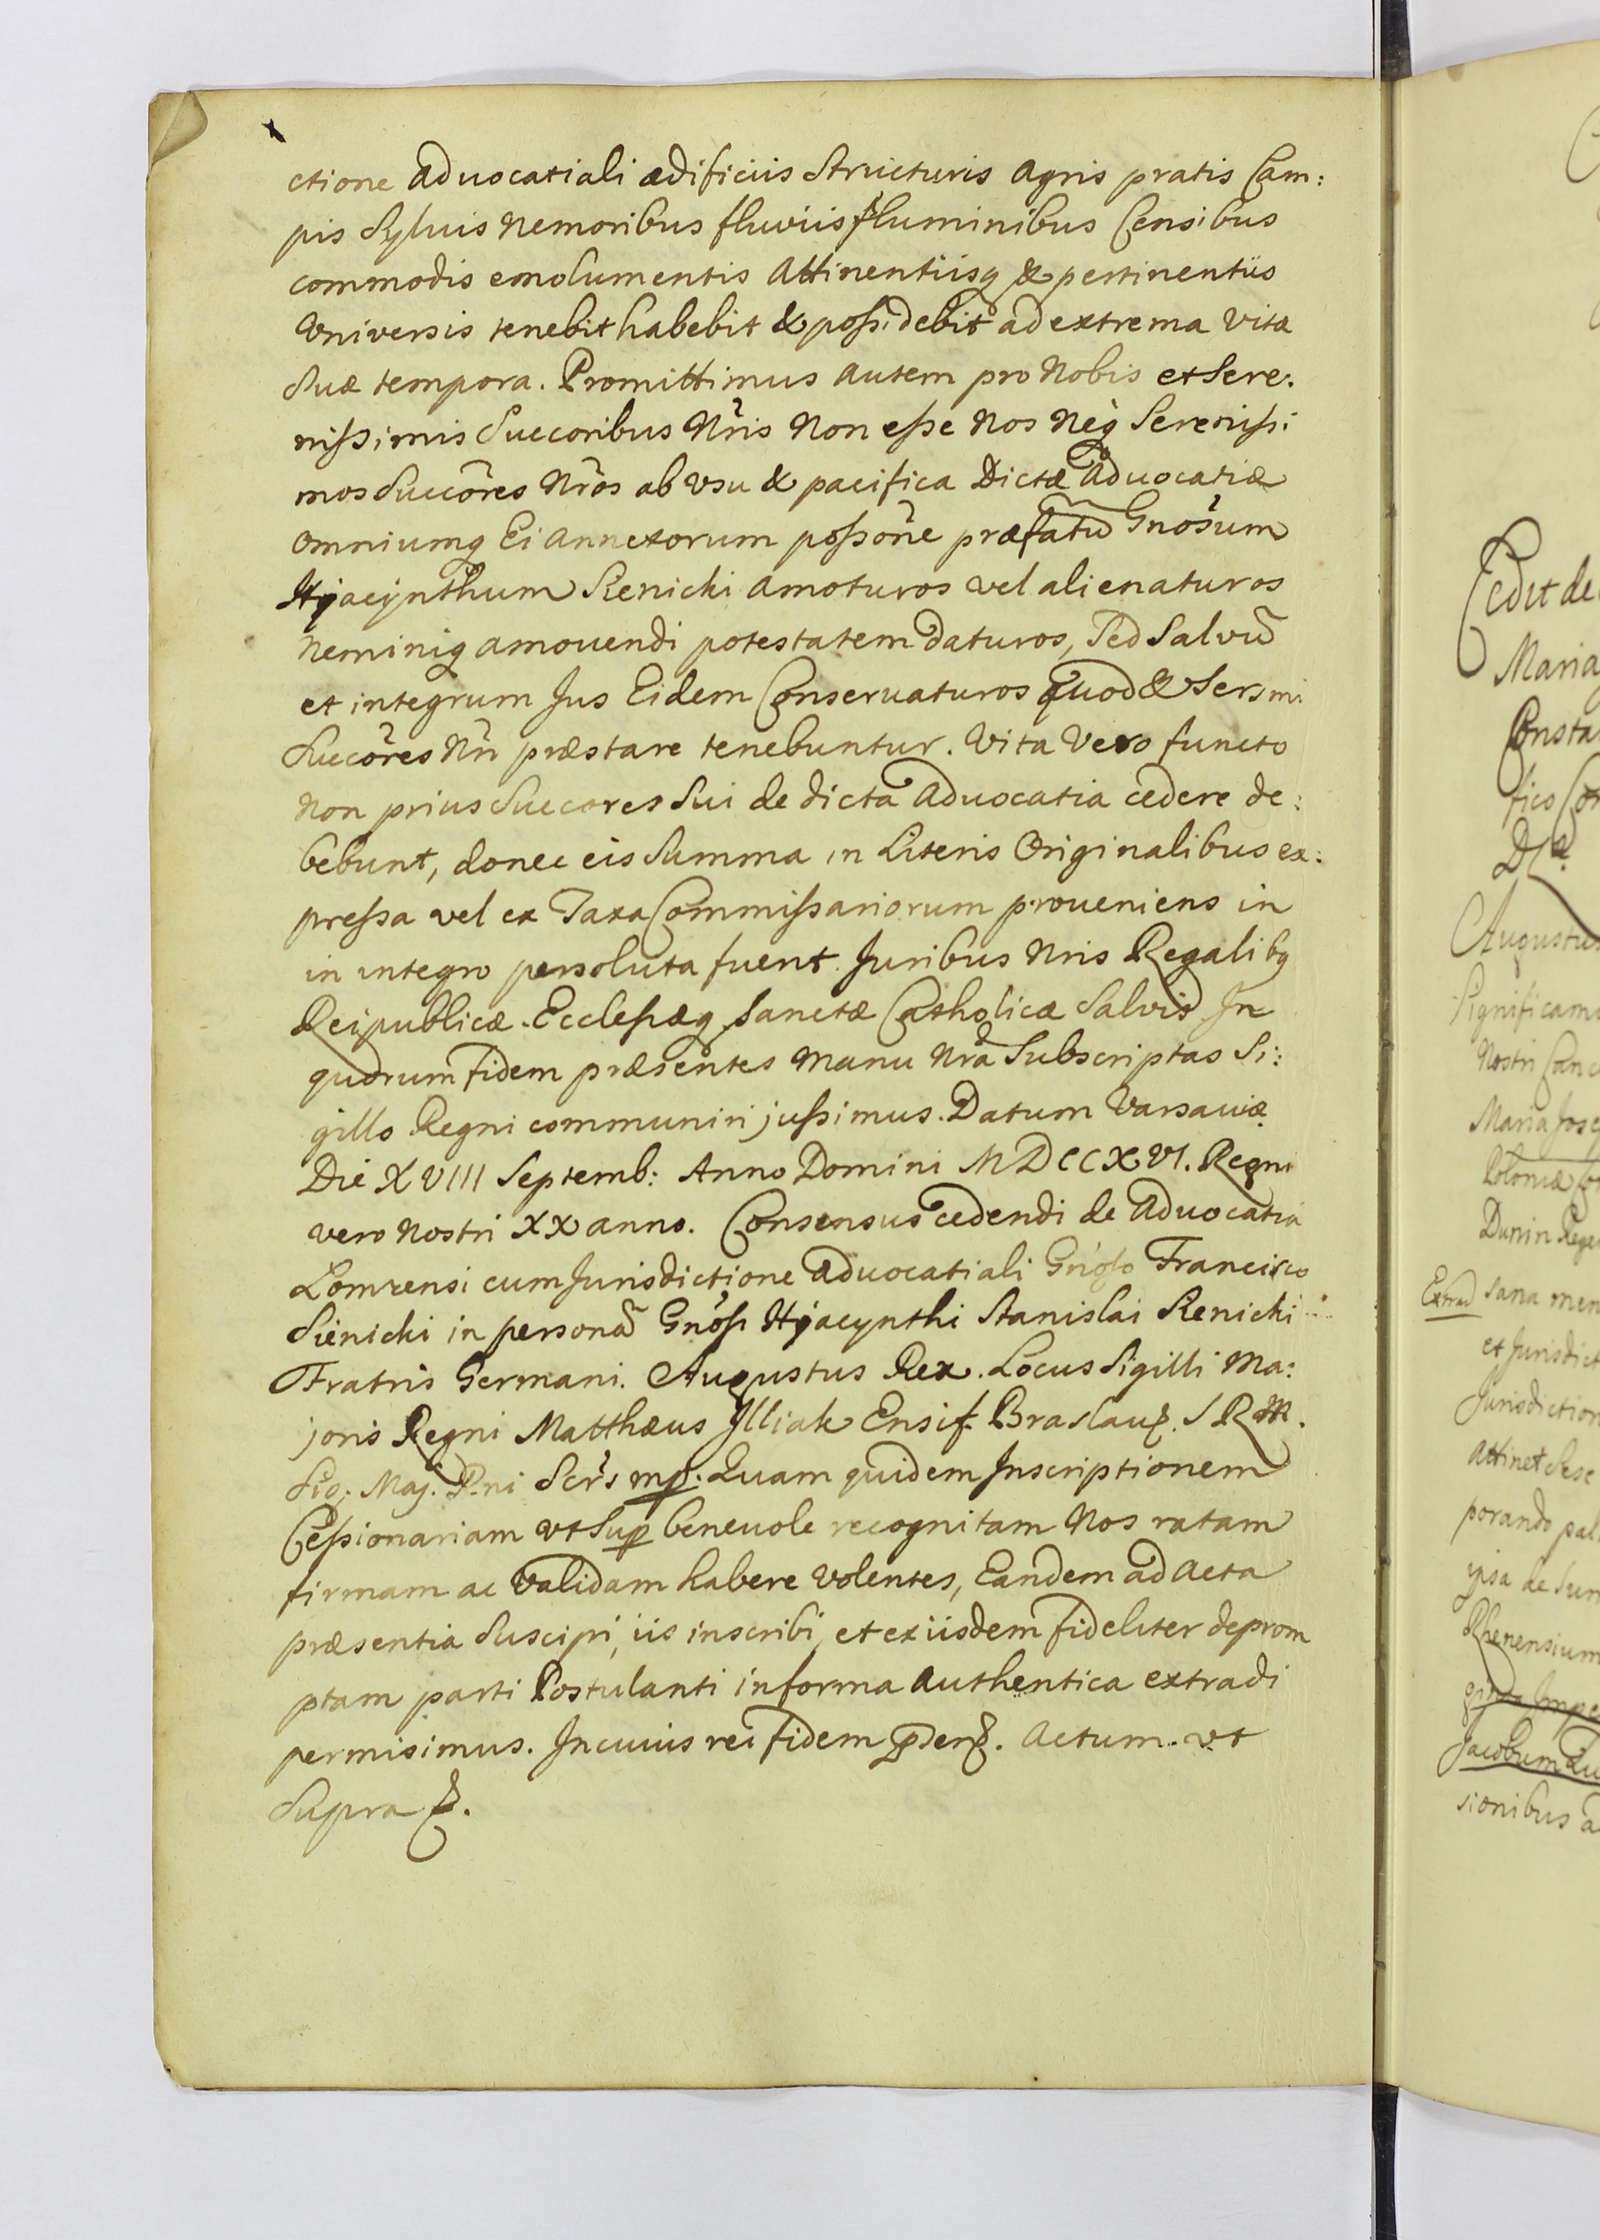 ctione advocatiali ædificiis Structuris Agris pratis Cam:
pis Sylvis Nemoribus fluviis fluminibus Censibus
commodis emolumentis Attinentiisq & pertinentiis
Universis tenebit habebit & possidebit ad extrema Vitæ
Suæ tempora. Promittimus Autem pro Nobis et Sere:
nissimis Succoribus Nris Non esse Nos Neq Serenissi
mos Succores Nros ab usu & pacifica Dictæ Advocatiæ
Omniumq Ei Annexorum possone præfatu Gnosum
Hyacynthum Sienicki Amoturos vel alienaturos
Neminiq amovendi potestatem daturos, Sed Salvu
et integrum Jus Eidem Conservaturos Quod & Sersmi
Succores Nri præstare tenebuntur. Vita Vero functo
Non prius Succores Sui de dicta Advocatia cedere de:
bebunt, donec eis Summa in Literis Originalibus ex:
pressa vel ex Taxa Commissariorum proveniens in
in integro persoluta fuerit. Juribus Nris Regalibq
Reipublicæ. Ecclesiæq Sanctæ Catholicæ Salvis In
quorum fidem præsentes Manu Nra Subscriptas Si:
gillo Regni communiri jussimus. Datum Varsaviæ
Die XVIII Septemb: Anno Domini MDCCXVI. Regni
vero Nostri XX anno. Consensus cedendi de Advocatia
Lomzensi cum Jurisdictione Advocatiali Gnoso Francisco
Sienicki in persona Gnosi Hyacynthi Stanislai Sienicki
Fratris Germani. Augustus Rex. Locus Sigilli Ma:
joris Regni Matthæus Jlliak Ensif. Braslau. S R M.
Sig: Maj. R.ni Scrs mp. Quam quidem Inscriptionem
Cessionariam ut Sup benevole recognitam Nos ratam
firmam ac Validam habere Volentes, Eandem ad Acta
præsentia Suscipi, iis inscribi, et ex iisdem fideliter deprom
ptam parti Postulanti in forma Authentica extradi
permisimus. In cuius rei fidem Actum. ut
Supra
Cedit de
Maria
Consta
Augustus
Significam
Nostri Canc
Maria Jose
Poloniæ
Dunin Rege
Extrad Sana men
et Jurisdict
Jurisdiction
Attinet Sese
porando pal
ipsa de Sum
Rhenensium
Jacobum
sionibus a